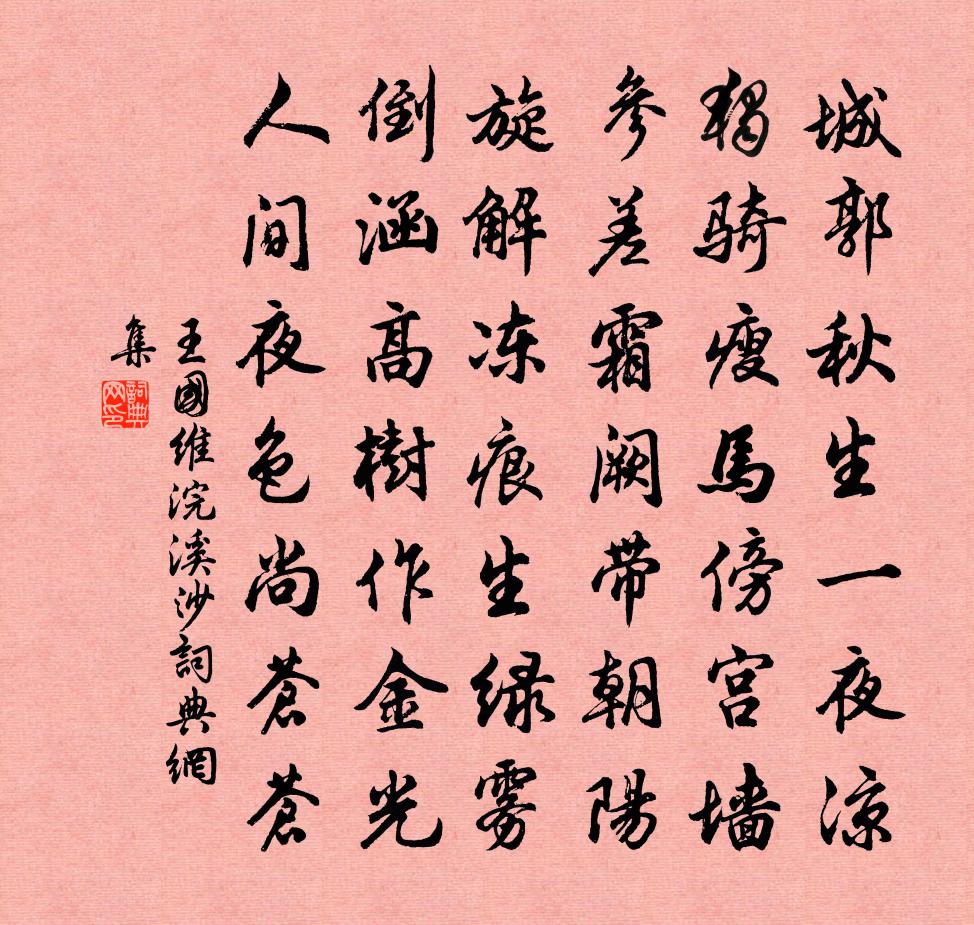 城郭秋生一夜凉
獨骑瘦馬傍宫墙
參差霜阙带朝陽
旋解冻痕生绿雾
倒涵高樹作金光
人间夜色尚蒼蒼
王國维浣溪沙詞典網
集
詞典
网印